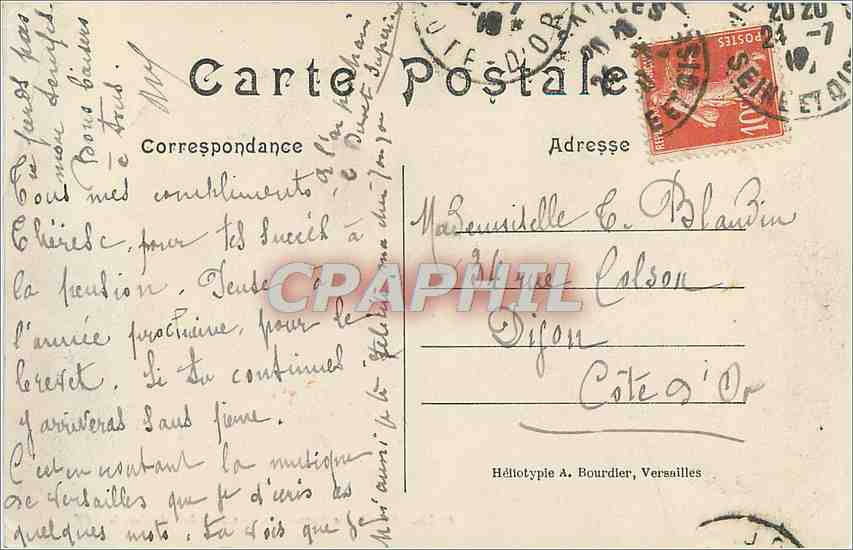 Carte Postale
Correspondance
Adresse
Tous mes compliments
Thérèse, pour tes succès à
la pension. Pense à
l'année prochaine, pour le
brevet. Si tu continues
y arriveras sans peine.
C'est en écoutant la musique
de Versailles que je t'écris ces
quelques mots. Tu vois que je
ne perds pas
mon temps.
Bons baisers
à tous
Moi aussi je te félicite ma chère
à l'an prochain
le Brevet Supérieur
Mademoiselle T. Blandin
34 rue Colson
Dijon
Côte d'Or
Héliotypie A. Bourdier, Versailles
CPAPHIL
POSTES
10
COTE D'OR
VERSAILLES
SEINE ET OISE
24 -7